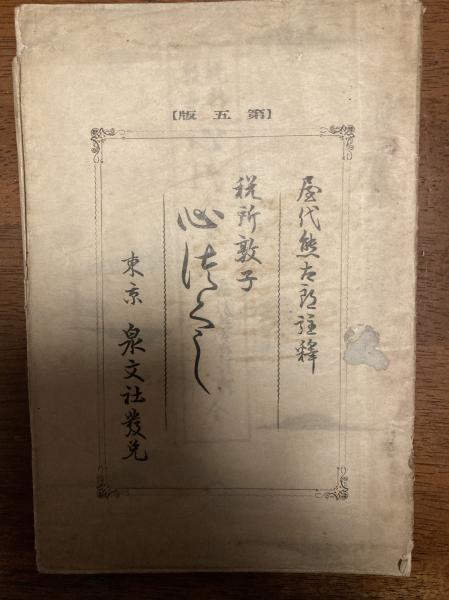 【第五版】
屋代熊太郎註釋
税所敦子
心つくし
東京 泉文社發兌